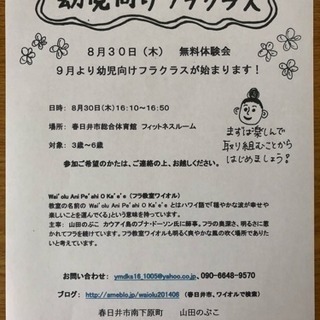 幼児向けフラクラス
8月30日（木）　無料体験会
9月より幼児向けフラクラスが始まります！
日時：　8月30日（木）16：10～16：50
場所：　春日井市総合体育館　フィットネスルーム
対象：　3歳～6歳
まずは楽しんで
取り組むことから
はじめましょう？
参加ご希望のかたは、ご連絡の上、お越しください。
Wai'olu Ani Pe'ahi O Ka'e'e（フラ教室ワイオル）
教室の名前の Wai'olu Ani Pe'ahi O Ka'e'e とはハワイ語で「穏やかな波が幸せや
楽しいことを運んでくる」という意味を持っています。
主宰： 山田のぶこ　カウアイ島のプナ・ドーソン氏に師事。フラの奥深さ、明るさに惹
かれてフラを続けています。フラ教室ワイオルも明るく爽やかな風の吹く場所でありた
いと考えています。
お問い合わせ： ymdks16_1005@yahoo.co.jp、090-6648-9570
ブログ： http://ameblo.jp/waiolu201408 （春日井市、ワイオルで検索）
春日井市南下原町　　山田のぶこ